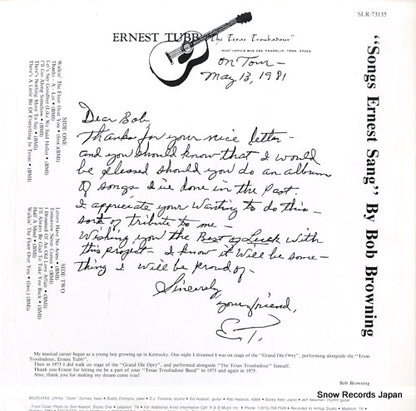 SLR-73135
ERNEST TUBB "The Texas Troubadour"
On Tour —
May 13, 1981
Dear Bob,
Thanks for your nice letter —
and you should know that I would
be pleased should you do an album
of songs I've done in the past.
I appreciate your wanting to do this —
sort of tribute to me —
Wishing you the Best of Luck with
this project — I know it will be some—
thing I will be proud of —
Sincerely
your friend,
E.T.
"Songs Ernest Sang" By Bob Browning
SIDE ONE
Walkin' The Floor Over You • (BMI)
Thanks - A - Lot • (BMI)
Let's Say Goodbye Like We Said Hello • (BMI)
I'll Get Along Somehow • (BMI)
There's Nothing More To Say • (BMI)
There's A Little Bit Of Everything In Texas • (BMI)
SIDE TWO
Letters Have No Arms • (BMI)
Tomorrow Never Comes • (BMI)
I Dreamed Of An Old Love Affair • (BMI)
I'll Always Be Glad To Take You Back • (BMI)
Half A Mind • (BMI)
Walkin' The Floor Over You
My musical career began as a young boy growing up in Kentucky. One night I dreamed I was on stage of the "Grand Ole Opry", performing alongside the "Texas
Troubadour, Ernest Tubb".
Then in 1973 I did walk on stage of the "Grand Ole Opry", and performed alongside "The Texas Troubadour" himself.
Thank you Ernest for letting me be a part of your "Texas Troubadour Band" in 1973 and again in 1975.
Also, thank you for making my dream come true!
Bob Browning
Snow Records Japan